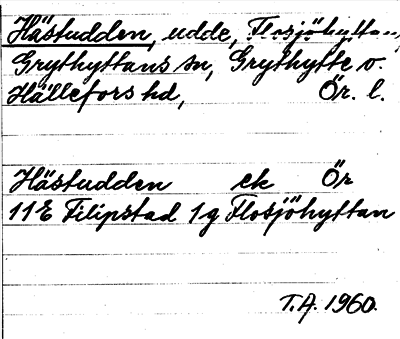 Hästudden, udde, Flosjöhyttan,
Grythyttans sn, Grythytte o.
Hällefors hd, Ör. l.
Hästudden ek Ör
11E Filipstad 1g Flosjöhyttan
T.A. 1960.